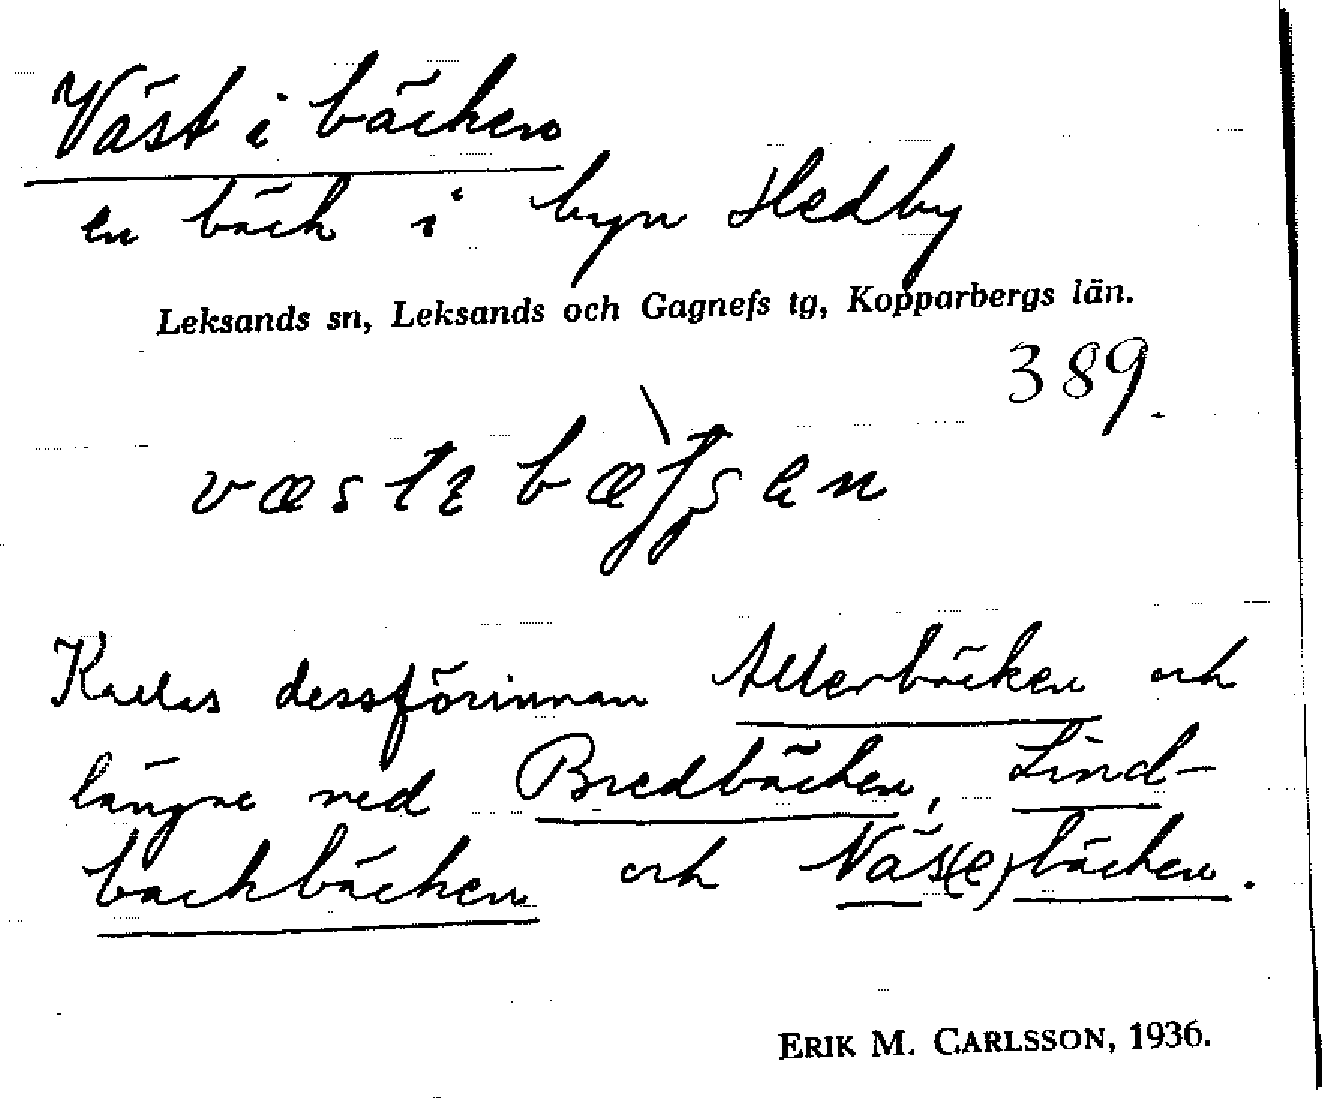 Väst i bäcken
en bäck i byn Hedby
Leksands sn, Leksands och Gagnefs tg, Kopparbergs län.
389.
Kallas dessförinnan Atterbäcken och
längre ned Bredbäcken, Lind-
backbäcken och Näs(e)bäcken.
ERIK M. CARLSSON, 1936.